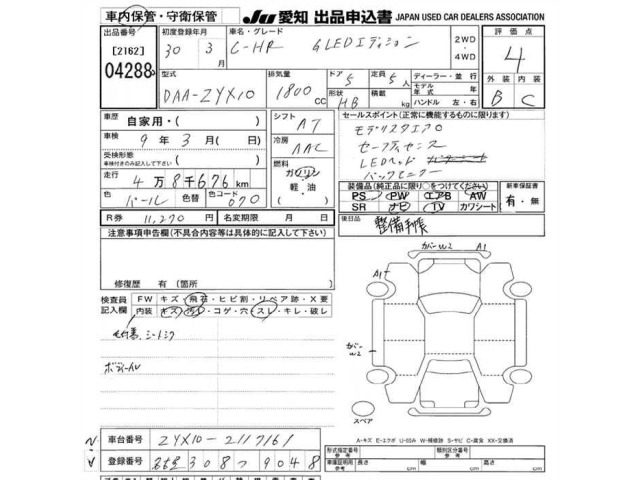 車内保管・守衛保管
JU 愛知 出品申込書 JAPAN USED CAR DEALERS ASSOCIATION
出品番号 初度登録年月 車名・グレード 評価点
[2162] 30年 3月 C-HR G LEDエディション 2WD・4WD 4
04288
型式 排気量 ドア 定員 ディーラー・並行 外装 内装
DAA-ZYX10 1800cc 5 5人 モデル年式 年 B C
形状 HB 積載 kg ハンドル 左・右
車歴 自家用・( ) シフト AT セールスポイント(正常に機能するものに限ります)
車検 9年 3月( 日) 冷房 AAC モデリスタエアロ
受検形態 車検付きのみ記入して下さい ( ) セーフティセンス
燃料 ガソリン 軽・油 LEDヘッド
走行 4万8千676km バックモニター
色 パール 色替 色コード 070 装備品(純正品に限り○をつけてください) 新車保証書
PS PW エアB AW 有・無
SR ナビ TV カワシート
R券 11,270円 名変期限 月 日 後日品 整備手帳
注意事項申告欄(不具合内容等は具体的に記入して下さい)
修復歴 有 (箇所
検査員記入欄 FW キズ・飛石・ヒビ割・リペア跡・X要
内装 キズ・汚れ・コゲ・穴・スレ・キレ・破レ
カバーW2 A1
A1
カバーW2
スペア
A-キズ E-エクボ U-凹み W-補修跡 S-サビ C-腐食 XX-交換済
車台番号 ZYX10-2117161
登録番号 名古屋 308 つ 9048
形式指定番号 参考 類別区分番号 参考
車庫証明用 参考 長さ cm 幅 cm 高さ cm